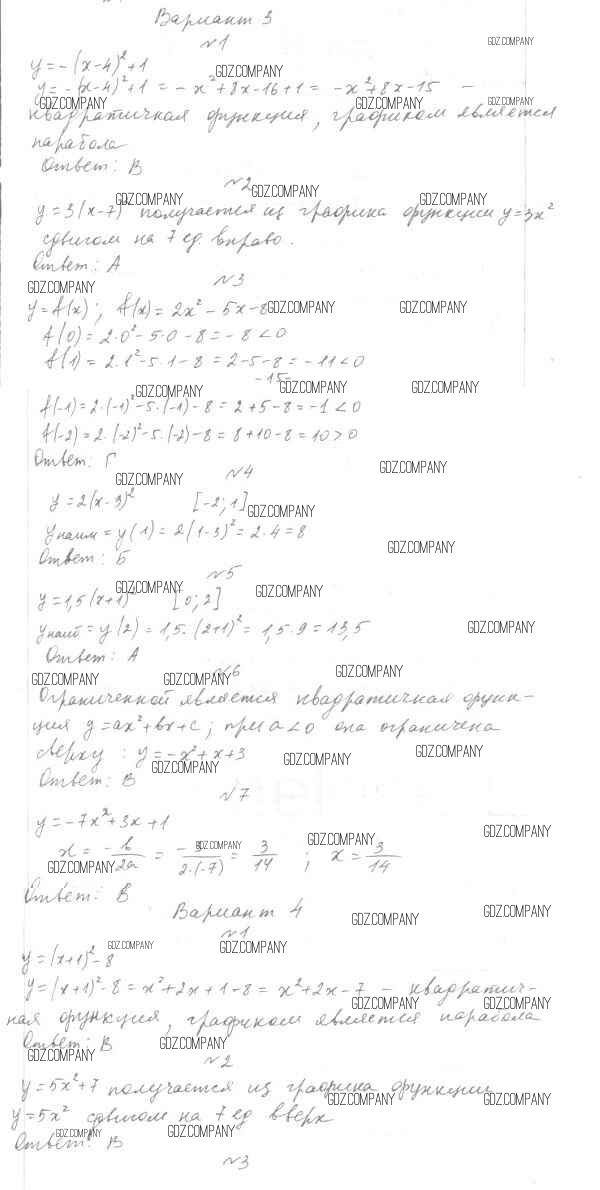 Вариант 3
№1
GDZ.COMPANY
y=-(x-4)²+1
GDZ.COMPANY
y=-(x-4)²+1=-x²+8x-16+1=-x²+8x-15 –
GDZ.COMPANY GDZ.COMPANY GDZ.COMPANY
квадратичная функция, графиком является
парабола
Ответ: В
№2 GDZ.COMPANY
GDZ.COMPANY GDZ.COMPANY
y=3(x-7)² получается из графика функции y=3x²
сдвигом на 7 ед. вправо.
Ответ: А
№3
GDZ.COMPANY
y=f(x); f(x)=2x²-5x-8 GDZ.COMPANY GDZ.COMPANY
f(0)=2·0²-5·0-8=-8<0
f(1)=2·1²-5·1-8=2-5-8=-11<0
-15-
GDZ.COMPANY GDZ.COMPANY GDZ.COMPANY
f(-1)=2·(-1)²-5·(-1)-8=2+5-8=-1<0
f(-2)=2·(-2)²-5·(-2)-8=8+10-8=10>0
Ответ: Г
№4 GDZ.COMPANY
GDZ.COMPANY
y=2(x-3)² [-2;1] GDZ.COMPANY
yнаим=y(1)=2(1-3)²=2·4=8
GDZ.COMPANY
Ответ: Б
№5
GDZ.COMPANY GDZ.COMPANY
y=1,5(x+1)² [0;2]
yнаиб=y(2)=1,5·(2+1)²=1,5·9=13,5 GDZ.COMPANY
Ответ: А
№6 GDZ.COMPANY
GDZ.COMPANY GDZ.COMPANY
Ограниченной является квадратичная функ-
ция y=ax²+bx+c; при a<0 она ограничена
сверху: y=-x²+x+3 GDZ.COMPANY GDZ.COMPANY
GDZ.COMPANY
Ответ: В
№7
y=-7x²+3x+1
GDZ.COMPANY
x=-b/2a=-3/2·(-7)=3/14; x=3/14
GDZ.COMPANY GDZ.COMPANY GDZ.COMPANY
Ответ: В
Вариант 4 GDZ.COMPANY GDZ.COMPANY
№1
GDZ.COMPANY GDZ.COMPANY
y=(x+1)²-8
y=(x+1)²-8=x²+2x+1-8=x²+2x-7 – квадратич-
GDZ.COMPANY GDZ.COMPANY
ная функция, графиком является парабола
Ответ: В GDZ.COMPANY
GDZ.COMPANY
№2
y=5x²+7 получается из графика функции
GDZ.COMPANY GDZ.COMPANY
y=5x² сдвигом на 7 ед вверх
GDZ.COMPANY GDZ.COMPANY
Ответ: В
№3